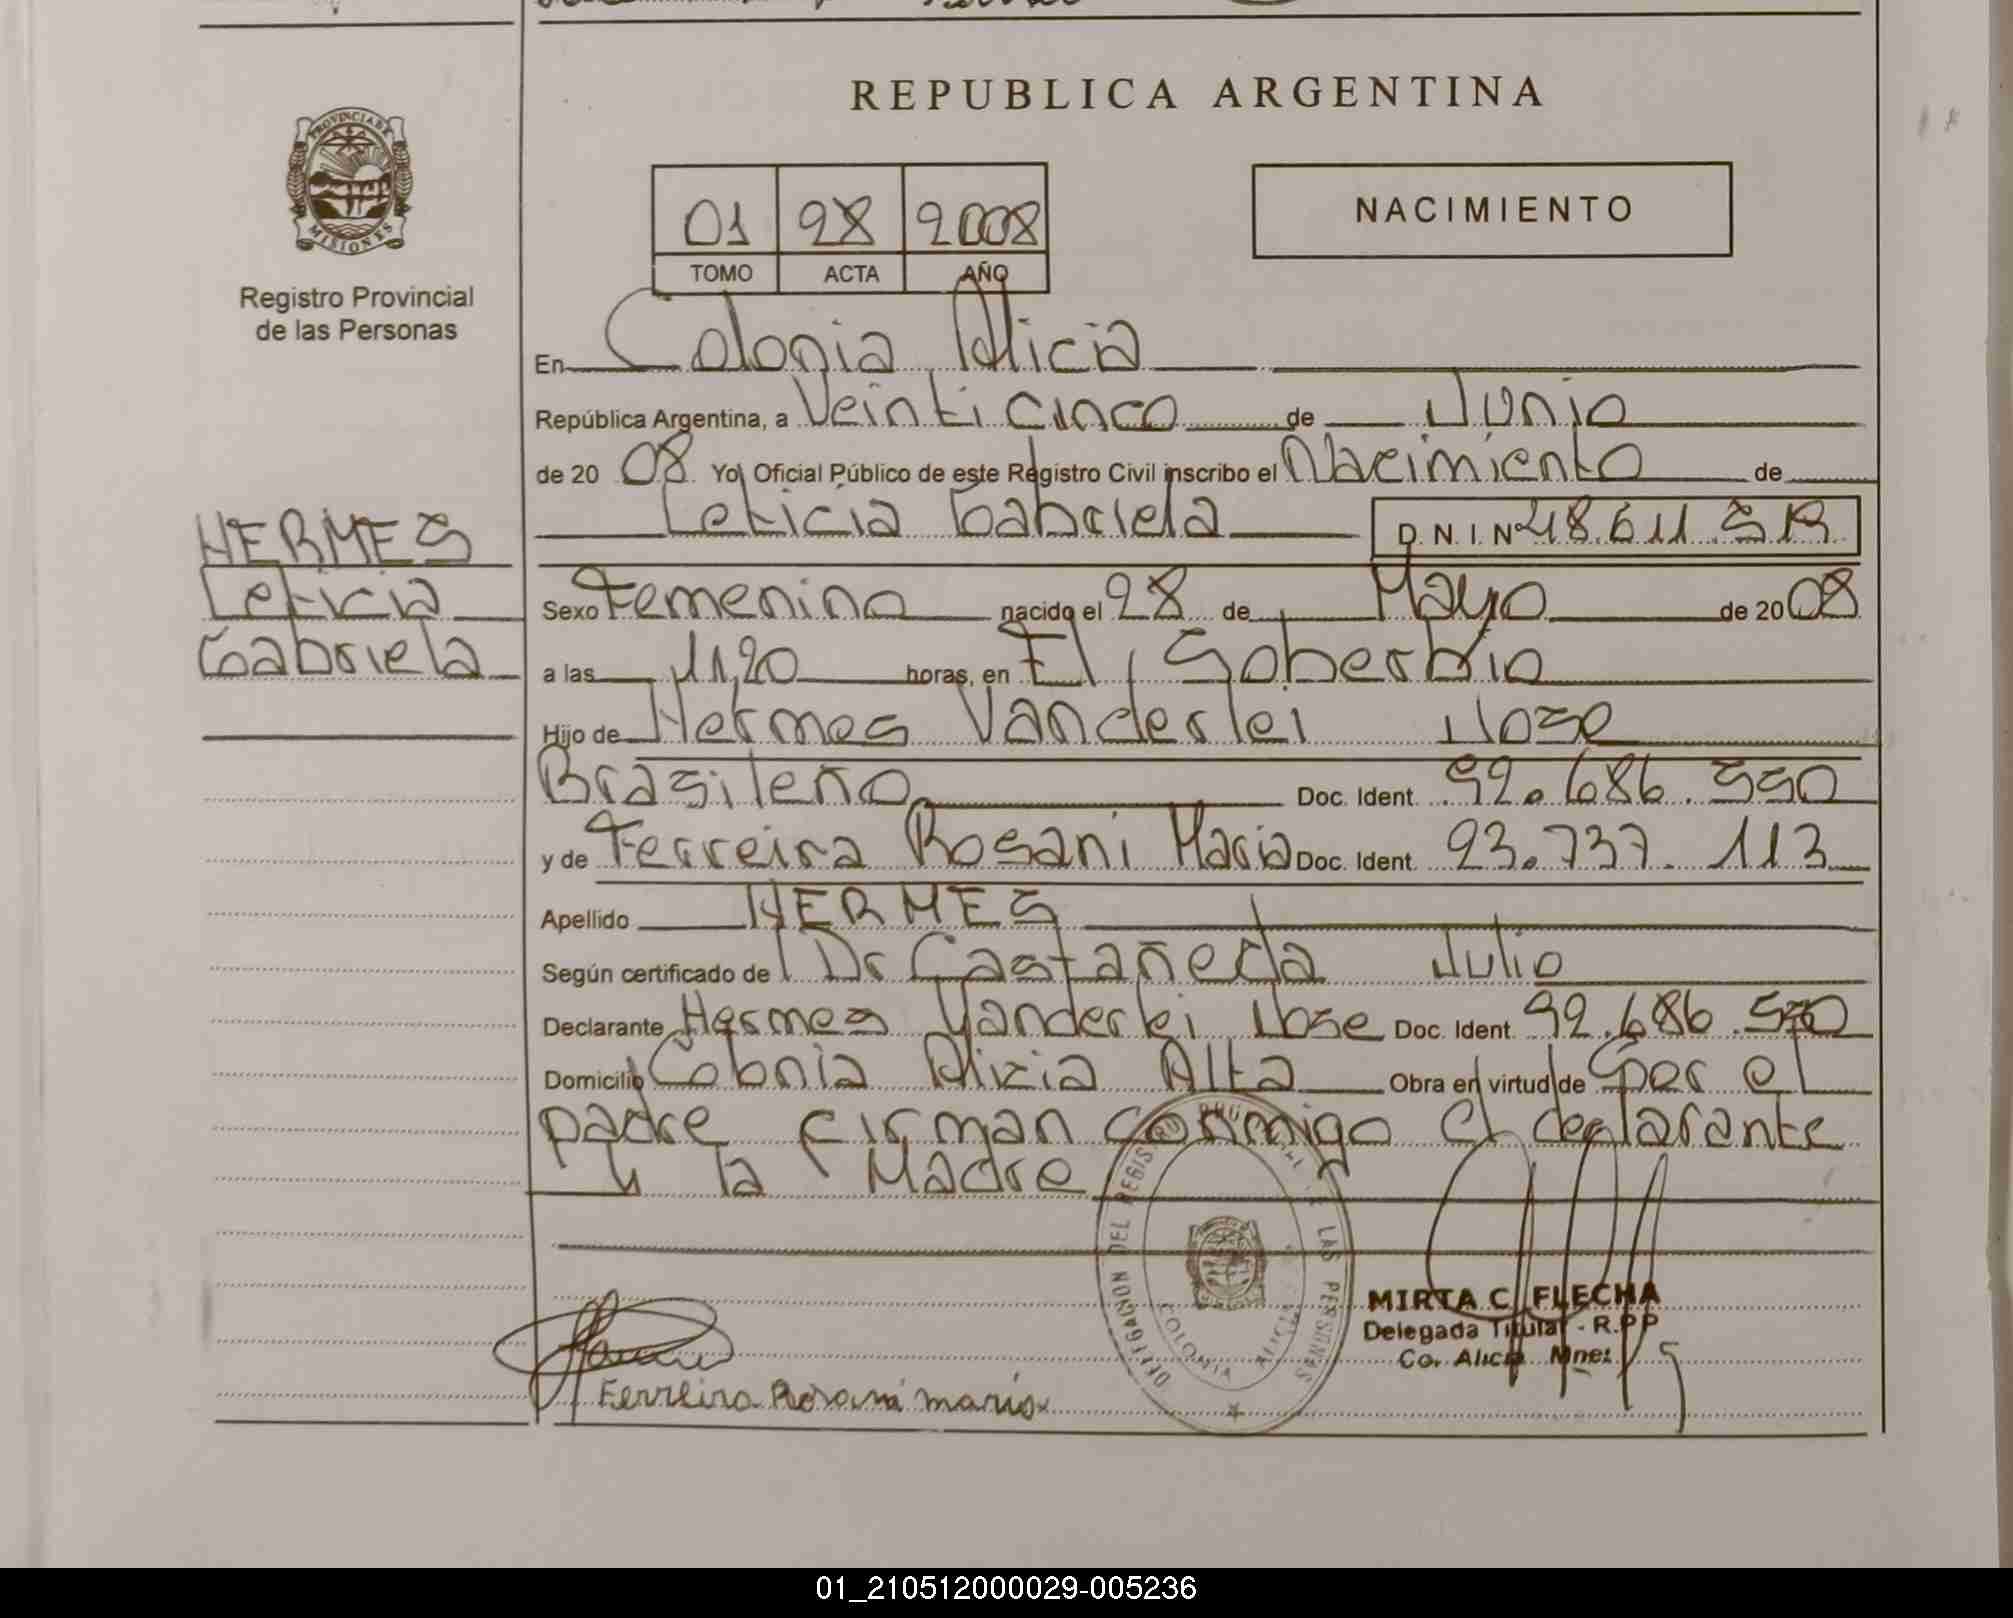 REPUBLICA ARGENTINA
PROVINCIA DE
MISIONES
Registro Provincial
de las Personas
01 28 2008
TOMO ACTA AÑO
NACIMIENTO
En Colonia Alicia
República Argentina, a Veinti cinco de Junio
de 20 08 Yo, Oficial Público de este Registro Civil inscribo el Nacimiento de
Leticia Gabriela D.N.I. Nº
HERMES
Leticia
Gabriela
Sexo Femenino nacido el 28 de Mayo de 20 08
a las 11,20 horas, en El Soberbio
Hijo de Hermes Vanderlei Jose
Brasileño Doc. Ident. 92.686.550
y de Ferreira Rosani Maria Doc. Ident. 93.737.113
Apellido HERMES
Según certificado de Dr Castañeda Julio
Declarante Hermes Vanderlei Jose Doc. Ident. 92.686.550
Domicilio Colonia Alicia Alta Obra en virtud de Ser el
padre firman conmigo el declarante
y la Madre
DELEGACION DEL REGISTRO PROVINCIAL DE LAS PERSONAS
COLONIA ALICIA
MIRTA C. FLECHA
Delegada Titular - R.P.P
Co. Alicia Mnes
Ferreira Rosani maria
01_210512000029-005236